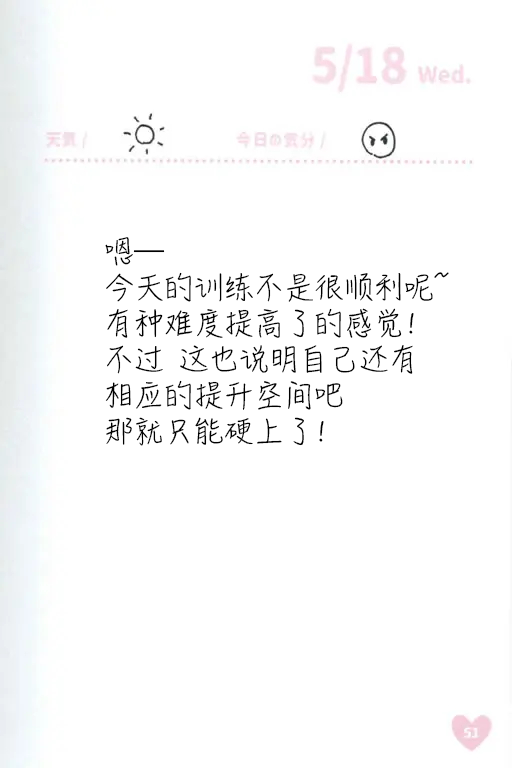 5/18 Wed.
天気/ 今日の気分/
嗯—
今天的训练不是很顺利呢~
有种难度提高了的感觉!
不过 这也说明自己还有
相应的提升空间吧
那就只能硬上了!
53